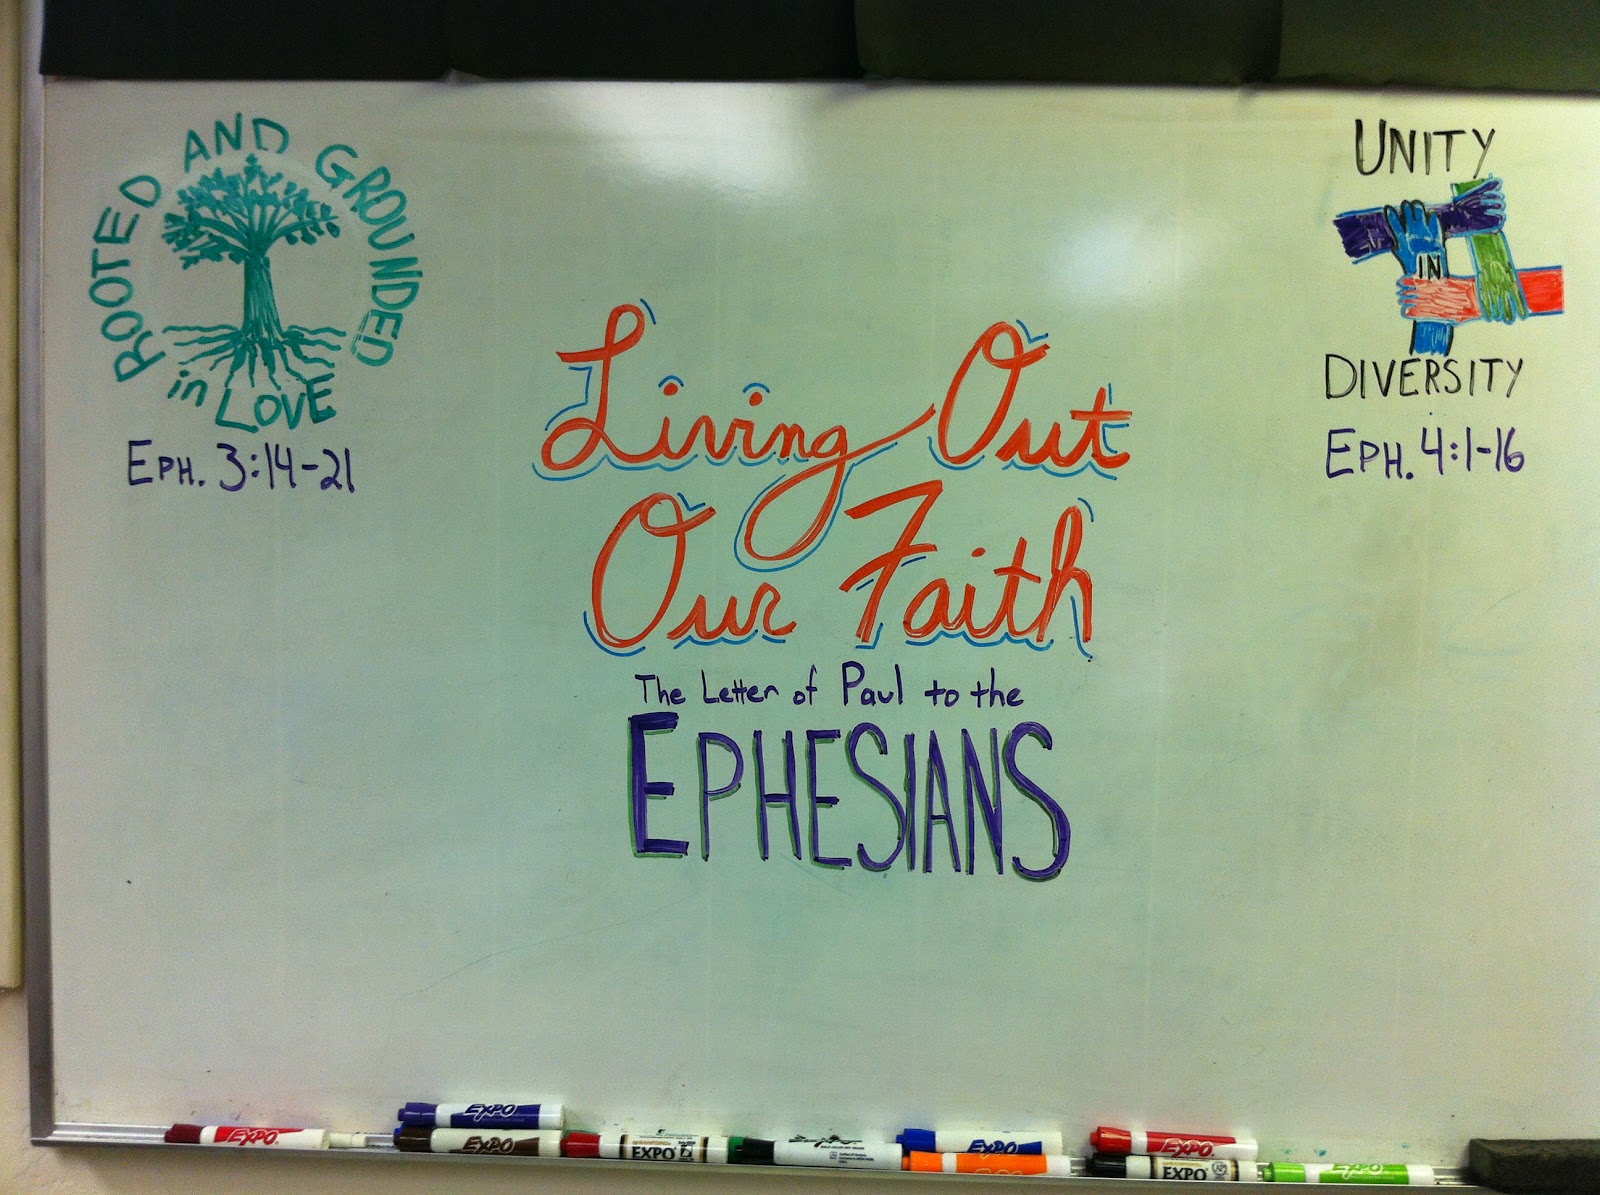 ROOTED AND GROUNDED
in LOVE
EPH. 3:14-21
UNITY
IN
DIVERSITY
EPH. 4:1-16
Living Out
Our Faith
The Letter of Paul to the
EPHESIANS
EXPO
EXPO
EXPO
EXPO
EXPO
EXPO
EXPO
EXPO